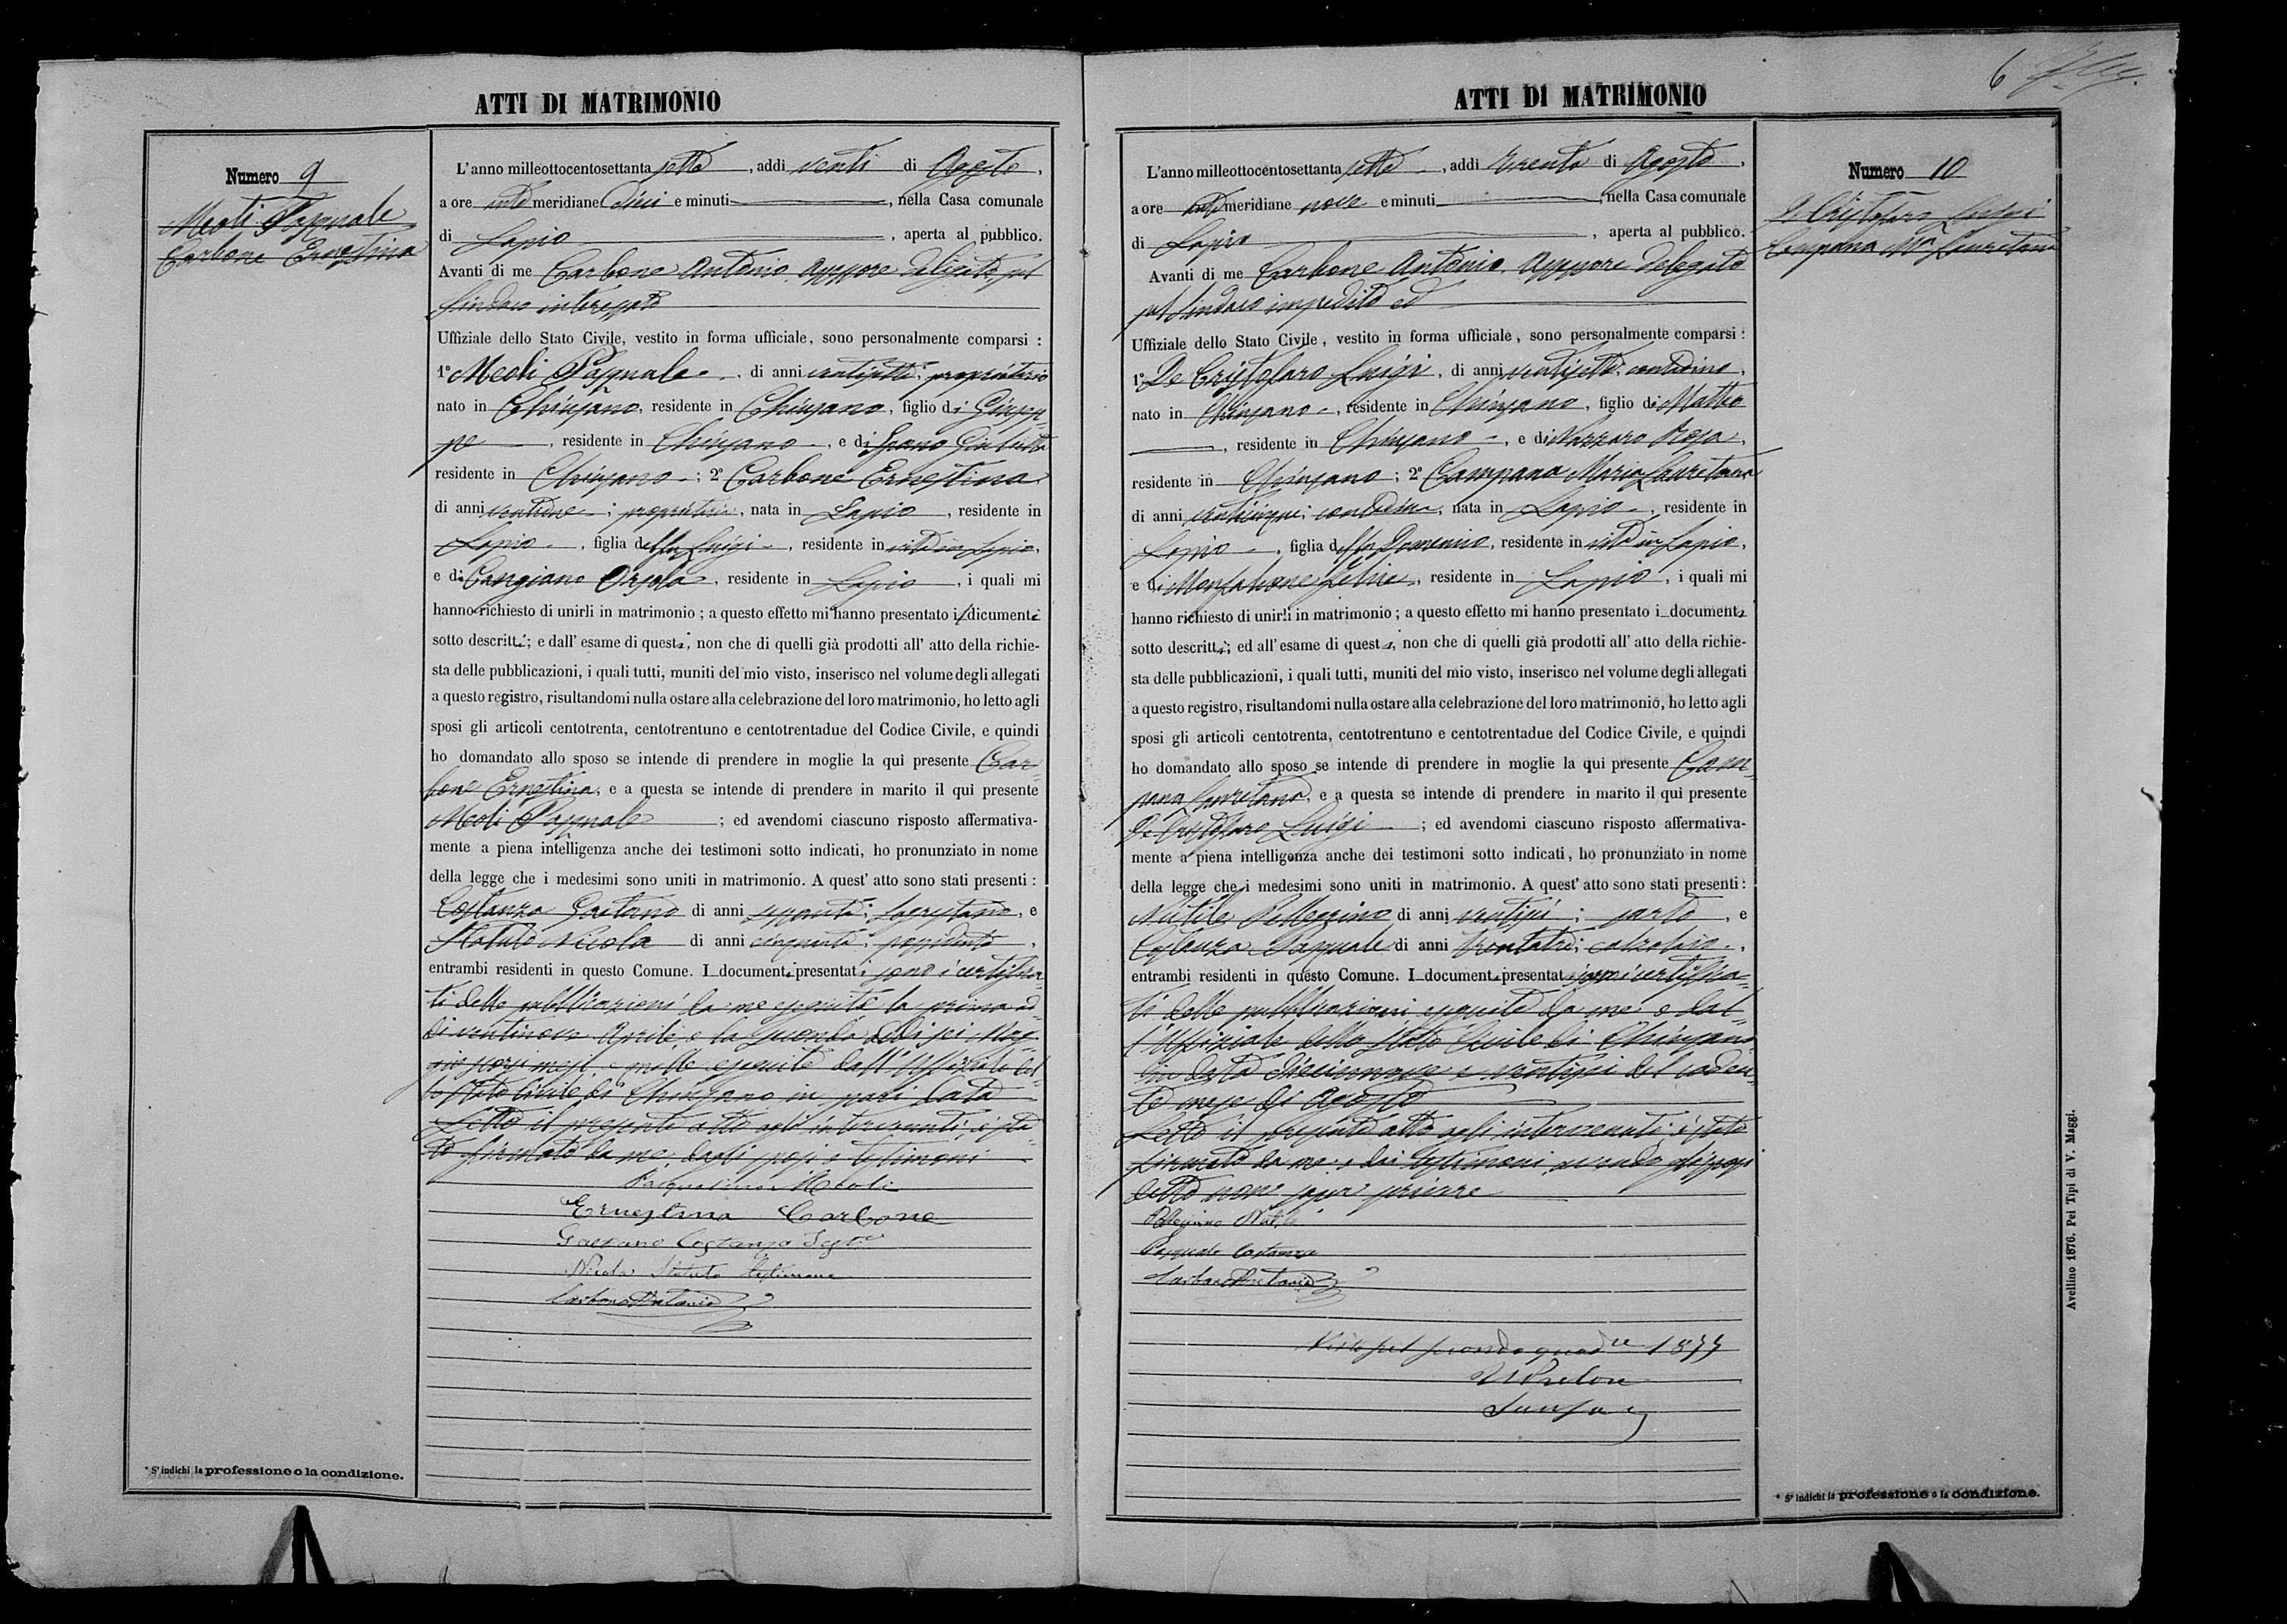 ATTI DI MATRIMONIO
Numero 9
Meoli Pasquale
Carbone Ernestina
L'anno milleottocentosettanta sette, addi venti di Agosto,
a ore anti meridiane dieci e minuti, nella Casa comunale
di Lapio, aperta al pubblico.
Avanti di me Carbone Antonio Assessore delegato pel
Sindaco interessato
Uffiziale dello Stato Civile, vestito in forma ufficiale, sono personalmente comparsi :
1° Meoli Pasquale, di anni ventisette; proprietario
nato in Chiusano, residente in Chiusano, figlio di Giusep
pe, residente in Chiusano, e di Spano
residente in Chiusano; 2° Carbone Ernestina
di anni; proprietaria, nata in Lapio, residente in
Lapio, figlia del fu Luigi, residente in vita in Lapio,
e di Cangiano Orsola, residente in Lapio, i quali mi
hanno richiesto di unirli in matrimonio ; a questo effetto mi hanno presentato i dicumenti
sotto descritti; e dall' esame di questi, non che di quelli già prodotti all' atto della richie-
sta delle pubblicazioni, i quali tutti, muniti del mio visto, inserisco nel volume degli allegati
a questo registro, risultandomi nulla ostare alla celebrazione del loro matrimonio, ho letto agli
sposi gli articoli centotrenta, centotrentuno e centotrentadue del Codice Civile, e quindi
ho domandato allo sposo se intende di prendere in moglie la qui presente Car-
bone Ernestina, e a questa se intende di prendere in marito il qui presente
Meoli Pasquale; ed avendomi ciascuno risposto affermativa-
mente a piena intelligenza anche dei testimoni sotto indicati, ho pronunziato in nome
della legge che i medesimi sono uniti in matrimonio. A quest' atto sono stati presenti :
Costanza Gaetano di anni sessanta; sagrestano, e
Statuto Nicola di anni cinquanta; possidente,
entrambi residenti in questo Comune. I documenti presentati sono i certifica-
ti delle pubblicazioni da me eseguite la prima ad-
di ventinove Aprile, e la seconda addi sei Mag-
gio scorsi mesi, e quelle eseguite dall'Uffiziale del-
lo Stato Civile di Chiusano in pari data
Letto il presente atto agli intervenuti, è sta-
to firmato da me, dagli sposi e testimoni
Pasqualino Meoli
Ernestina Carbone
Gaetano Costanza Testi
Nicola Statuto testimone
Carbone Antonio
* S' indichi la professione o la condizione.
6
ATTI DI MATRIMONIO
Numero 10
De Cristofaro Luigi
Campana Ma Lauretana
L'anno milleottocentosettanta sette, addi trenta di Agosto,
a ore anti meridiane nove e minuti, nella Casa comunale
di Lapio, aperta al pubblico.
Avanti di me Carbone Antonio Assessore delegato
pel Sindaco impedito ed
Uffiziale dello Stato Civile, vestito in forma ufficiale, sono personalmente comparsi :
1° De Cristofaro Luigi, di anni ventisette; contadino,
nato in Chiusano, residente in Chiusano, figlio di Matteo
, residente in Chiusano, e di Nazzaro Rosa,
residente in Chiusano; 2° Campana Maria Lauretana
di anni venticinque; contadina, nata in Lapio, residente in
Lapio, figlia del fu Domenico, residente in vita in Lapio,
e di, residente in Lapio, i quali mi
hanno richiesto di unirli in matrimonio ; a questo effetto mi hanno presentato i documenti
sotto descritti; ed all' esame di questi, non che di quelli già prodotti all' atto della richie-
sta delle pubblicazioni, i quali tutti, muniti del mio visto, inserisco nel volume degli allegati
a questo registro, risultandomi nulla ostare alla celebrazione del loro matrimonio, ho letto agli
sposi gli articoli centotrenta, centotrentuno e centotrentadue del Codice Civile, e quindi
ho domandato allo sposo se intende di prendere in moglie la qui presente Cam-
pana Lauretana, e a questa se intende di prendere in marito il qui presente
De Cristofaro Luigi; ed avendomi ciascuno risposto affermativa-
mente a piena intelligenza anche dei testimoni sotto indicati, ho pronunziato in nome
della legge che i medesimi sono uniti in matrimonio. A quest' atto sono stati presenti :
Nutile Pellegrino di anni ventisei; sarto, e
Costanza Pasquale di anni trentatre; calzolaio,
entrambi residenti in questo Comune. I documenti presentati sono i certifica-
ti delle pubblicazioni eseguite da me e dal-
l'Uffiziale dello Stato Civile di Chiusano
in data diecinnove e ventisei del caden-
te mese di Agosto
Letto il presente atto agli intervenuti è stato
firmato da me e dai testimoni avendo gli sposi
detto non saper scrivere
Pellegrino Nutile
Pasquale Costanza
Carbone Antonio
Visto pel secondo quadre 1877
Il Pretore
* S' indichi la professione o la condizione.
Avellino 1876. Pei Tipi di V. Maggi.